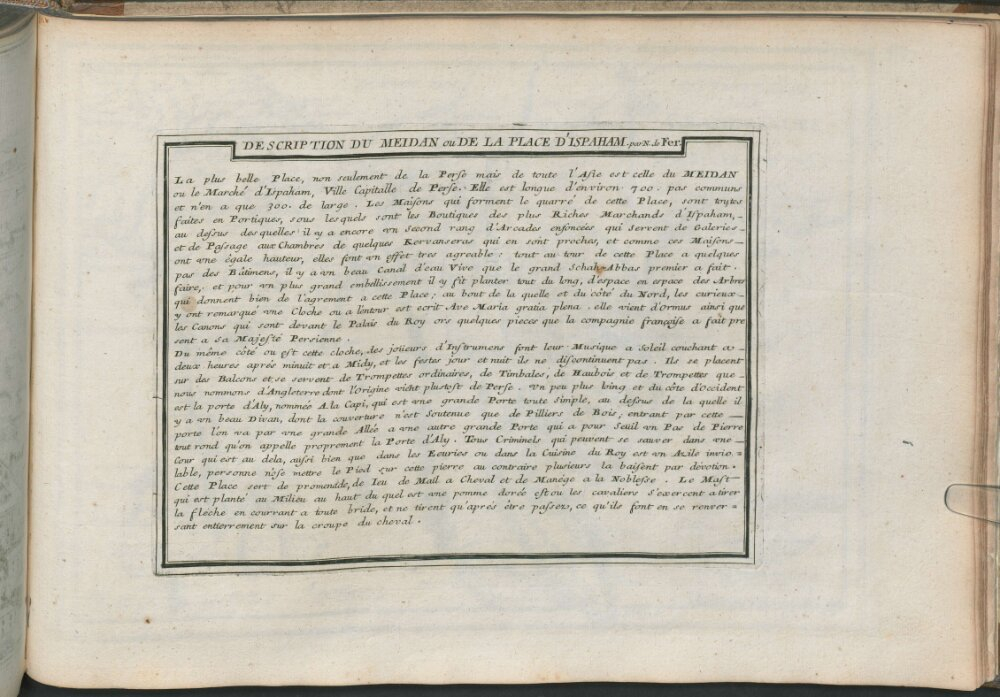 DESCRIPTION DU MEIDAN ou DE LA PLACE D'ISPAHAM. par N. de Fer.
La plus belle Place, non seulement de la Perse mais de toute l'Asie est celle du MEIDAN
ou le Marché d'Ispaham, Ville Capitalle de Perse. Elle est longue d'environ 700. pas communs
et n'en a que 300. de large. Les Maisons qui forment le quarré de cette Place, sont toutes
faites en Portiques, sous lesquels sont les Boutiques des plus Riches Marchands d'Ispaham,
au dessus desquelles il y a encore vn Second rang d'Arcades enfoncées qui servent de Galeries
et de Passage aux Chambres de quelques Kervanseras qui en sont proches, et comme ces Maisons
ont vne égale hauteur, elles font vn effet tres agreable: tout au tour de cette Place a quelques
pas des Bâtimens, il y a vn beau Canal d'eau Vive que le grand Schah-Abbas premier a fait
faire, et pour vn plus grand embellissement il y fit planter tout du long, d'espace en espace des Arbres
qui donnent bien de l'agrement a cette Place; au bout de la quelle et du côté du Nord, les curieux
y ont remarqué vne Cloche ou a l'entour est ecrit Ave Maria gratia plena. elle vient d'Ormus ainsi que
les Canons qui sont devant le Palais du Roy ors quelques pieces que la compagnie françoise a fait pre
sent a sa Majesté Persienne.
Du même côté ou est cette cloche, des joüeurs d'Instrumens font leur Musique a Soleil couchant a
deux heures aprés minuit et a Midy, et les festes jour et nuit ils ne discontinuent pas. Ils se placent
sur des Balcons et se servent de Trompettes ordinaires, de Timbales, de Haubois et de Trompettes que
nous nommons d'Angleterre dont l'Origine vieht plustost de Perse. Vn peu plus loing et du côte d'Occident
est la porte d'Aly, nommée A.la Capi, qui est vne grande Porte toute Simple, au dessus de la quelle il
y a vn beau Divan, dont la couverture n'est Soutenue que de Pilliers de Bois; entrant par cette
porte l'on va par vne grande Allée a vne autre grande Porte qui a pour Seuil vn Pas de Pierre
tout rond qu'on appelle proprement la Porte d'Aly. Tous Criminels qui peuvent se sauver dans vne
Cour qui est au dela, aussi bien que dans les Ecuries ou dans la Cuisine du Roy est vn Azile invio=
lable, personne n'ose mettre le Pied sur cette pierre au contraire plusieurs la baisent par dévotion.
Cette Place sert de promenade, de Ieu de Mail a Cheval et de Manége a la Noblesse. Le Mast
qui est planté au Milieu au haut du quel est vne pomme dorée est ou les cavaliers s'exercent a tirer
la fleche en courrant a toute bride, et ne tirent qu'aprés être passez, ce qu'ils font en se renver=
sant entierrement sur la croupe du cheval.